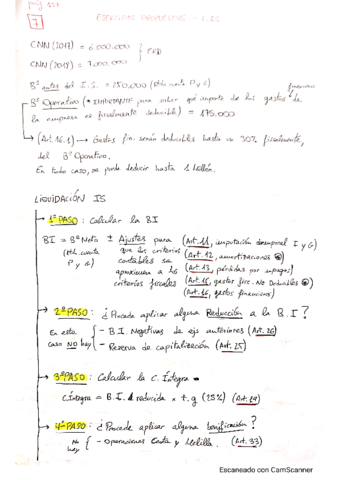 pág 127
7
EJERCICIOS PROPUESTOS - T. IS
CNN (2017) = 6.000.000
CNN (2018) = 7.000.000
ERD
Bº antes del I.S. = 250.000 (Rtdo. cuenta P y G)
financieros
Bº Operativo (* IMPORTANTE para saber qué importe de los gastos de
la empresa es fiscalmente deducible) = 175.000
(Art. 16.1) → Gastos fin. serán deducibles hasta un 30% fiscalmente,
del Bº Operativo.
En todo caso, se puede deducir hasta 1 Millón.
LIQUIDACIÓN IS
→ 1º PASO: Calcular la BI
BI = Bº Neto ± Ajustes para (Art. 11, imputación temporal I y G)
(Rtdo. cuenta P y G) que los criterios (Art. 12, amortizaciones)
contables se (Art. 13, pérdidas por impagos)
aproximen a los (Art. 15, gastos fisc. No Deducibles)
criterios fiscales (Art. 16, gastos financieros)
→ 2º PASO: ¿Procede aplicar alguna Reducción a la B.I?
En este caso NO hay
- B.I. Negativas de ejs anteriores (Art. 26)
- Reserva de capitalización (Art. 25)
→ 3º PASO: Calcular la C. Íntegra
C. Íntegra = B.I. reducida x t.g (25%) (Art. 29)
→ 4º PASO: ¿Procede aplicar alguna bonificación?
No hay { - Operaciones Ceuta y Melilla. (Art. 33)
Escaneado con CamScanner